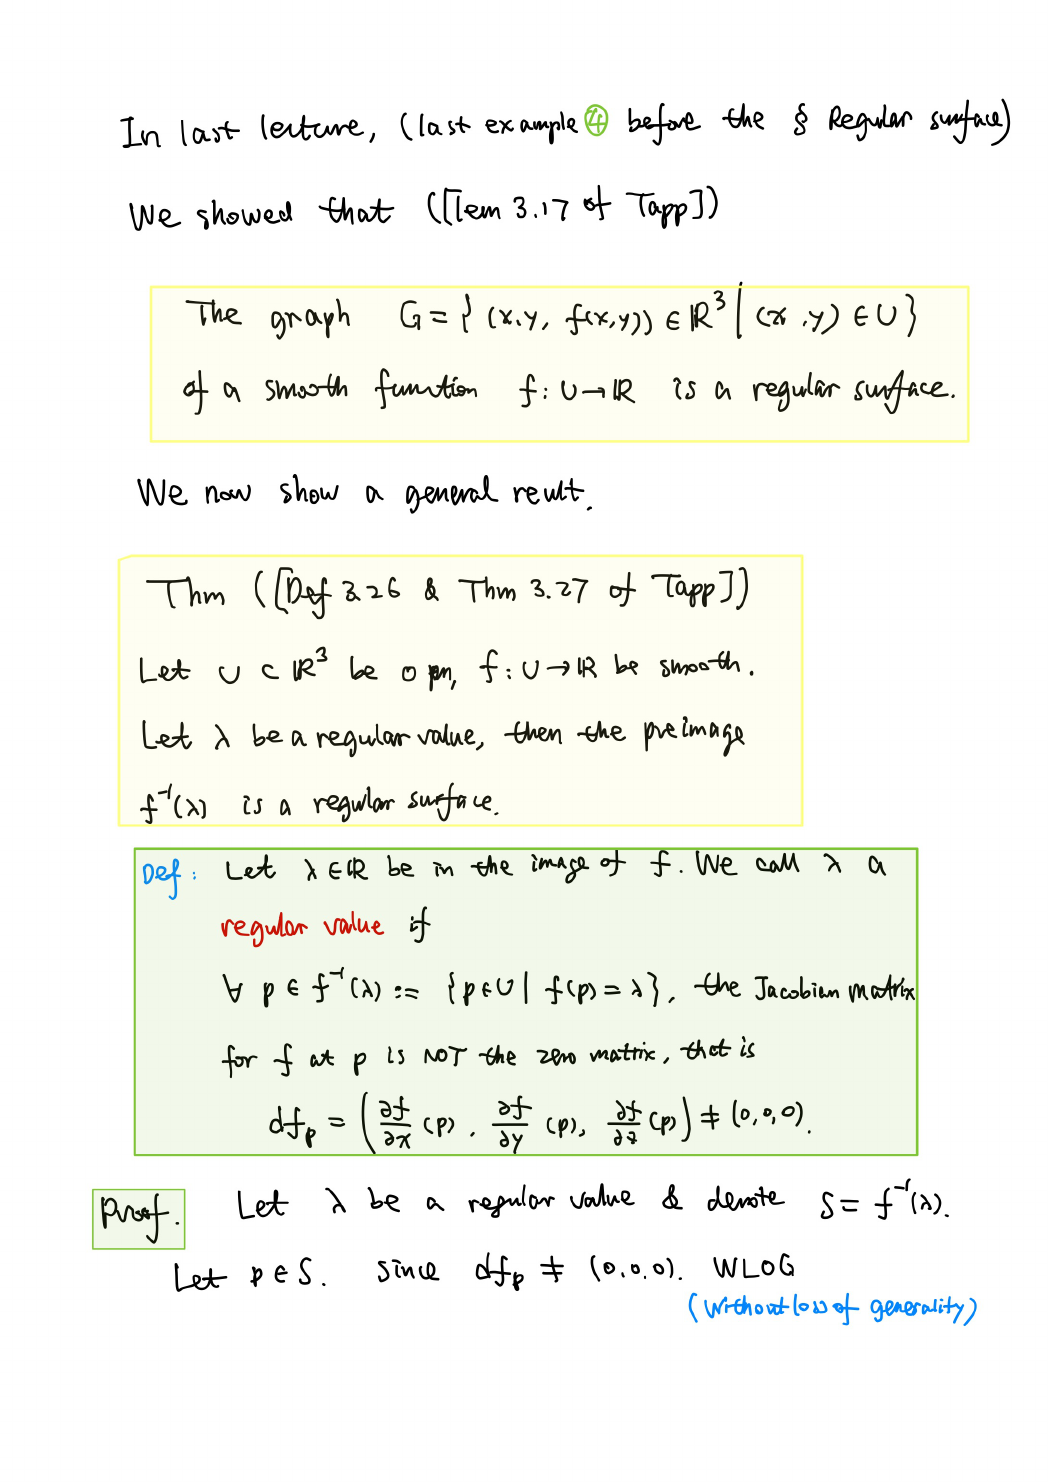 In last lecture, (last example ④ before the § Regular surface)
We showed that ([Lem 3.17 of Tapp])
The graph G = { (x,y, f(x,y)) ∈ ℝ³ | (x,y) ∈ U }
of a smooth function f: U → ℝ is a regular surface.
We now show a general reult.
Thm ([Def 3.26 & Thm 3.27 of Tapp])
Let U ⊂ ℝ³ be open, f: U → ℝ be smooth.
Let λ be a regular value, then the preimage
f⁻¹(λ) is a regular surface.
Def: Let λ ∈ ℝ be in the image of f. We call λ a
regular value if
∀ p ∈ f⁻¹(λ) := {p ∈ U | f(p) = λ}, the Jacobian matrix
for f at p is NOT the zero matrix, that is
df_p = (∂f/∂x (p), ∂f/∂y (p), ∂f/∂z (p)) ≠ (0,0,0).
Proof. Let λ be a regular value & denote S = f⁻¹(λ).
Let p ∈ S. since df_p ≠ (0.0.0). WLOG
(without loss of generality)